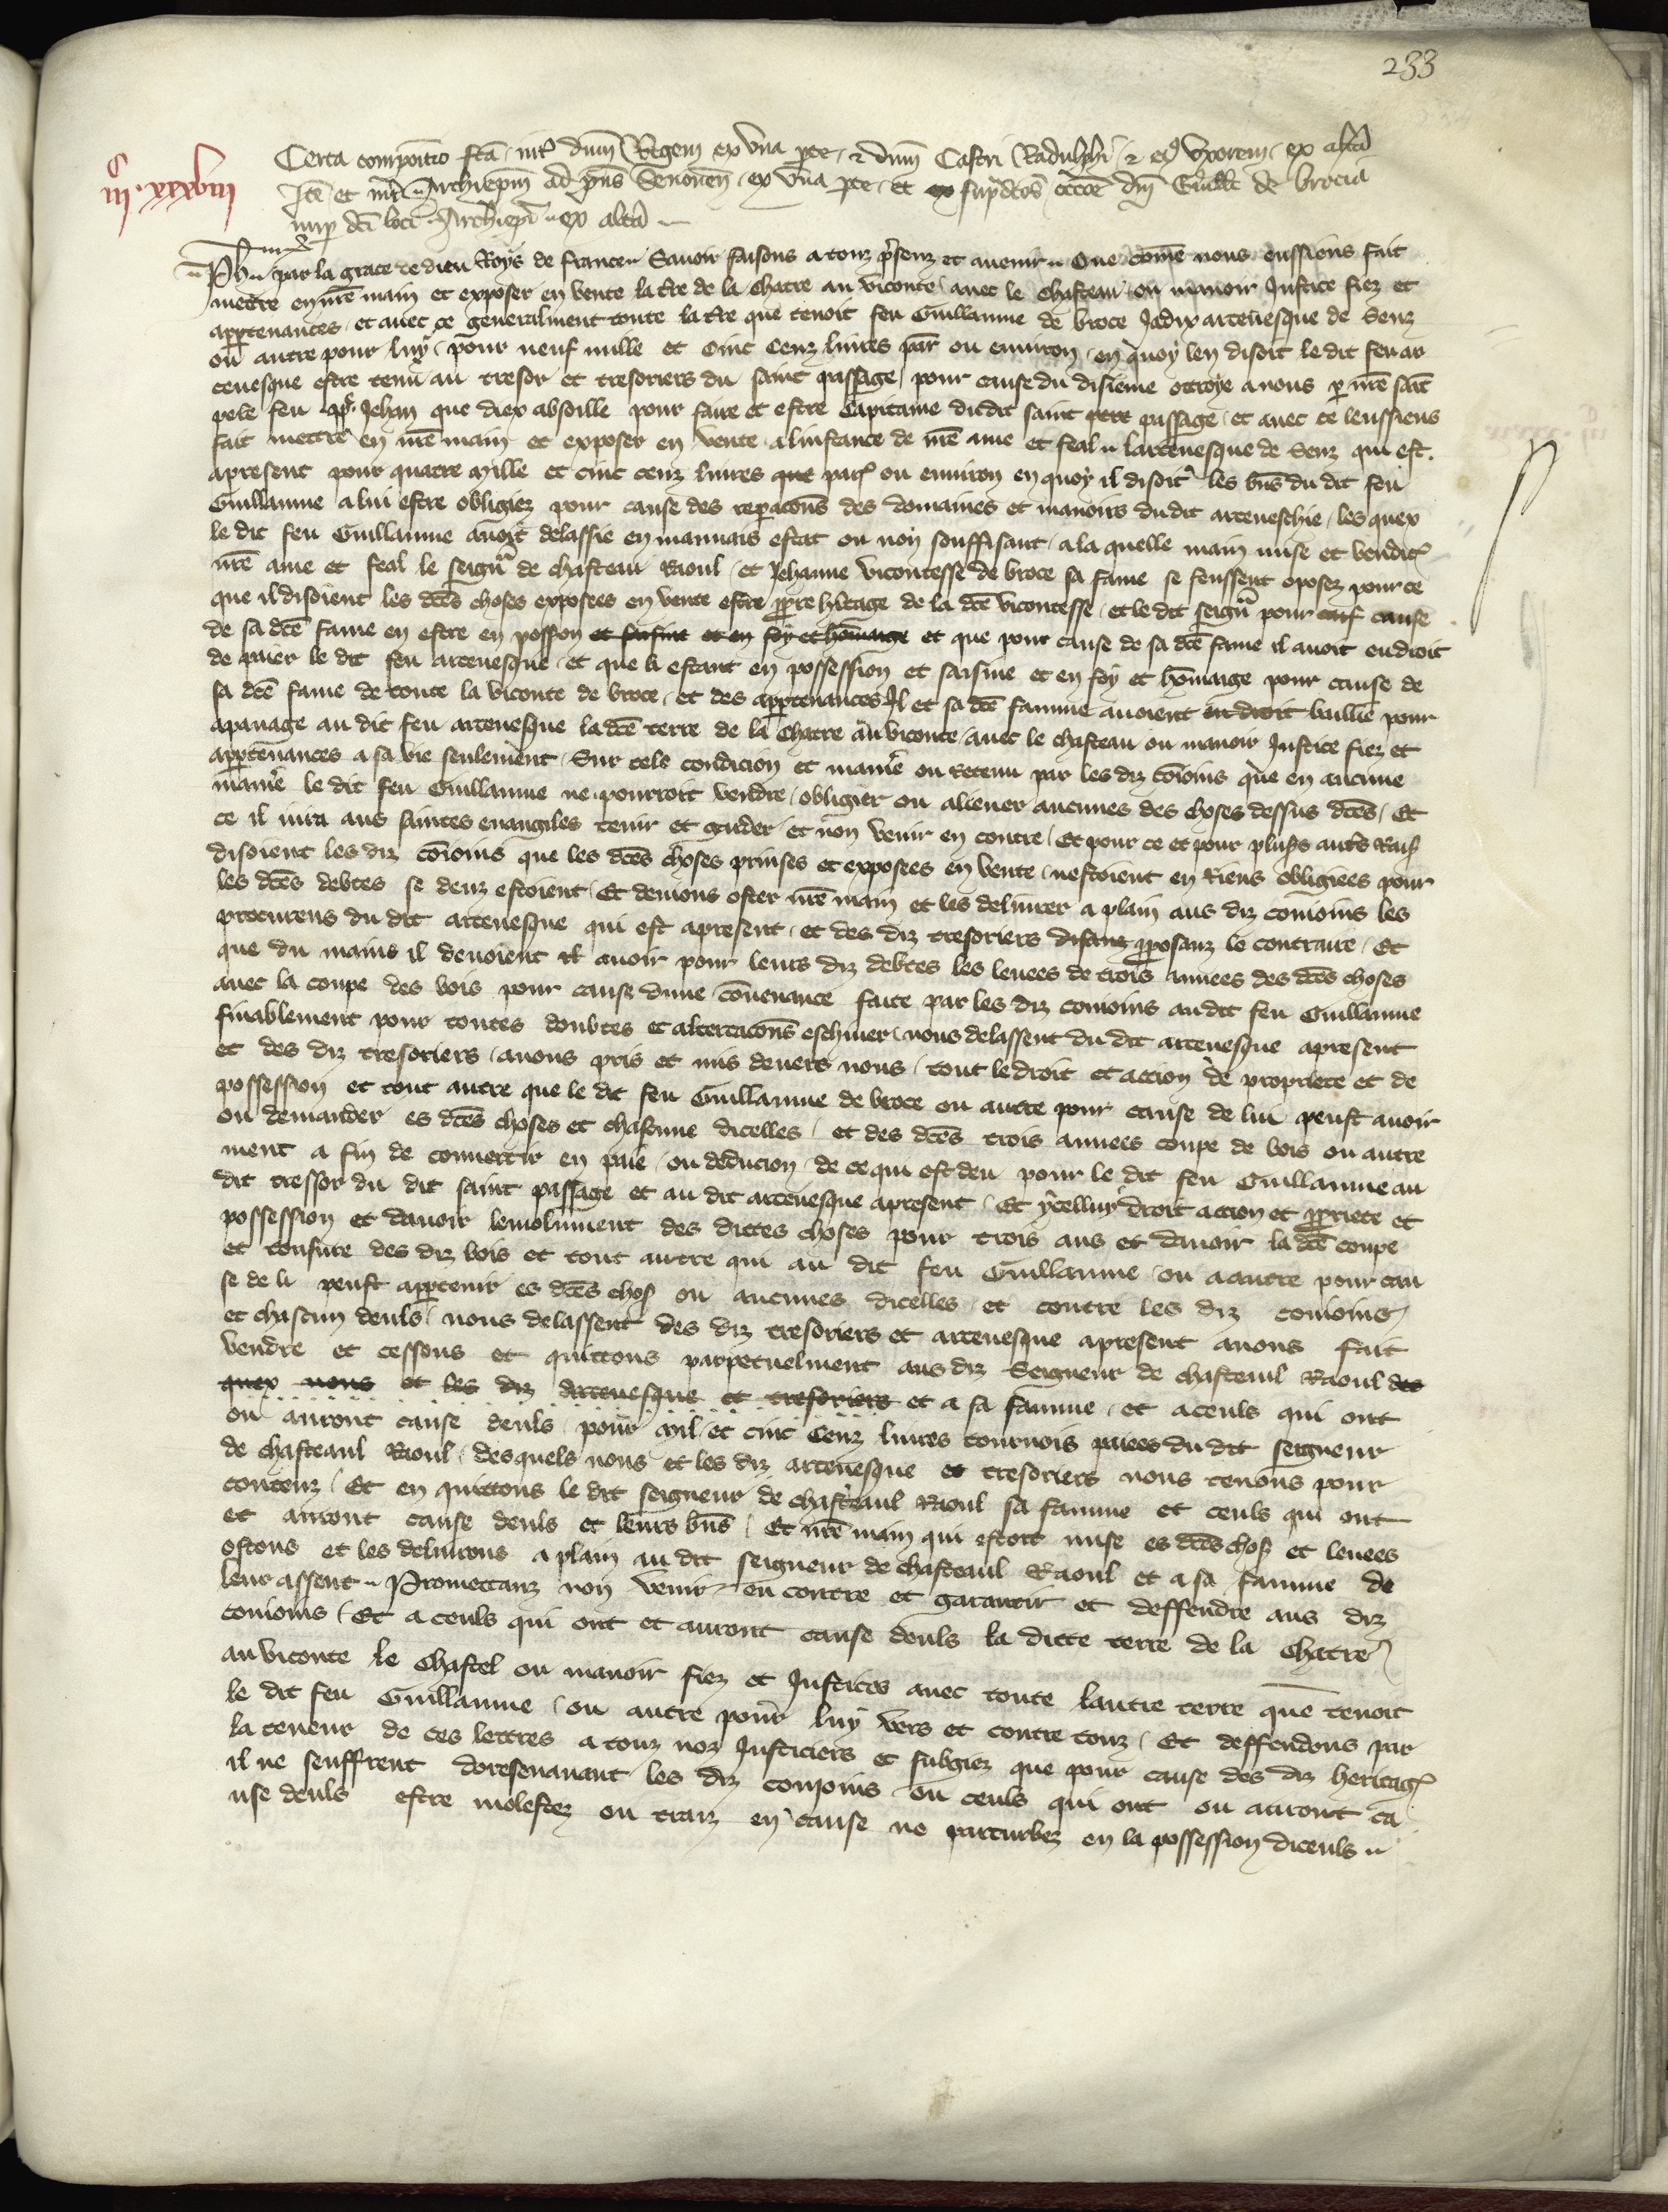 233
Certa compoitio fca int dnm Regem ex vna pte et dnm Castri Radulphi et ei uxorem ex altera
Ite et int Archiepm ad pns Senonen ex vna pte et supdcos occoe dni Guilli de brocia
nup dci loci Archiepi ex altera
iiijxxxviij
Ph par la grace de dieu Roys de france Sauoir faisons a touz psenz et auenir Que come nous eussions fait
mettre en nre main et exposer en vente la tre de la Chatre au viconte auec le Chasteau ou manoir Justice fiez et
appartenances et auec ce generalment toute la tre que tenoit feu Guillaume de broce Jadix arceuesque de Senz
ou autre pour luy pour neuf mille et Cinc Cenz liures par ou enuiron en quoy len disoit le dit feu ar
ceuesque estre tenu au tresor et tresoriers du saint passage pour cause du disieme ottroye a nous p nre saint
pe le feu pp Jehan que diex absoille pour faire et estre Capitaine dudit saint passage et auec ce leussiens
fait mettre en nre main et exposer en vente a linstance de nre ame et feal larceuesque de Senz qui est
apresent pour quatre mille et cinc cenz liures que par ou enuiron en quoy il disoit les bns du dit feu
Guillaume a lui estre obligiez pour cause des reperacons des domaines et manoirs dudit arceueschie les quex
le dit feu Guillaume auoit delassie en mauuais estat ou non souffisant a la quelle main mise et vendit
nre ame et feal le seignr de chasteau Raoul et Jehanne vicontesse de broce sa fame se feussent oposez pour ce
que il disoient les dces choses exposees en vente estre ppre heritage de la dce vicontesse et le dit seignr pour cause
de sa dce fame en estre en possion et saisine et en foy et homaige et que pour cause de sa dce fame il auoit en droit
de paier le dit feu arceuesque et que li estant en possession et saisine et en foy et homaige pour cause de
sa dce fame de toute la viconte de broce et des appartenances Il et sa dce famme auoient en droit baillie pour
apanage au dit feu arceuesque la dce terre de la Chatre au viconte auec le chasteau ou manoir Justice fiez et
appartenances a sa vie seulement Sur tele condicion et maniere ou Retenu par les diz coioins que en aucune
maniere le dit feu Guillaume ne pourroit vendre obligier ou aliener aucunes des choses dessus dces Et
ce il iura aus saintes euangiles tenir et garder et non venir en contre Et pour ce et pour plus autres Rais
disoient les diz coioins que les dces choses prinses et exposees en vente nestoient en Riens obligiees pour
les dces debtes se deuz estoient Et deuions oster nre main et les deliurer a plain aus diz conioins les
procureurs du dit arceuesque qui est apresent et des diz tresoriers disanz pposanz le contraire Et
que du mains il deuoient auoir pour leurs diz debtes les leuees de trois annees des dces choses
auec la coupe des bois pour cause dune conuenance faite par les diz conioins au dit feu Guillaume
finablement pour toutes doubtes et altercacons escheuer nous delassent du dit arceuesque apresent
et des diz tresoriers auons pris et mis deuers nous tout le droit et action de propriete et de
possession et tout autre que le dit feu Guillaume de broce ou autre pour cause de lui peust auoir
ou demander es dces choses et chascune dicelles et des dces trois annees coupe de bois ou autre
ment a fin de conuertir en paie ou deducion de ce qui est deu pour le dit feu Guillaume au
dit tressor du dit saint passage et au dit arceuesque apresent Et ycelluy droit action et ppriete et
possession et dauoir lemolument des dictes choses pour trois ans et dauoir la dce coupe
et tonsure des diz bois et tout autre qui au dit feu Guillaume ou a autre pour cau
se de li peust appartenir es dces chos ou aucunes dicelles et contre les diz conioins
et chascun deuls nous delassent des diz tresoriers et arceuesque apresent auons fait
vendre et cessons et quittons parpetuelment aus diz Seigneur de chasteaul Raoul des
quex nous et les diz Arceuesque et tresoriers et a sa famme et a ceuls qui ont
ou auront cause deuls pour mil et cinc Cenz liures tournois paiees du dit seigneur
de chasteaul Raoul desquels nous et les diz arceuesque et tresoriers nous tenons pour
contenz Et en quittons le dit seigneur de chasteaul Raoul sa famme et ceuls qui ont
et auront cause deuls et leurs bns Et nre main qui estoit mise es dces chos et leuees
ostons et les deliurons a plain au dit seigneur de chasteaul Raoul et a sa famme de
leur assent Promettanz non venir en contre et garantir et deffendre aus diz
conioins Et a ceuls qui ont et auront cause deuls la dicte terre de la Chatre
au viconte le Chastel ou manoir fiez et Justices auec toute lautre terre que tenoit
le dit feu Guillaume ou autre pour luy vers et contre touz Et deffendons par
la teneur de ces lettres a touz noz Justiciers et subgiez que pour cause des diz heritages
il ne seuffrent doresenauant les diz conioins ou ceuls qui ont ou auront ca
use deuls estre molestez ou traiz en cause ne parturbez en la possession diceuls